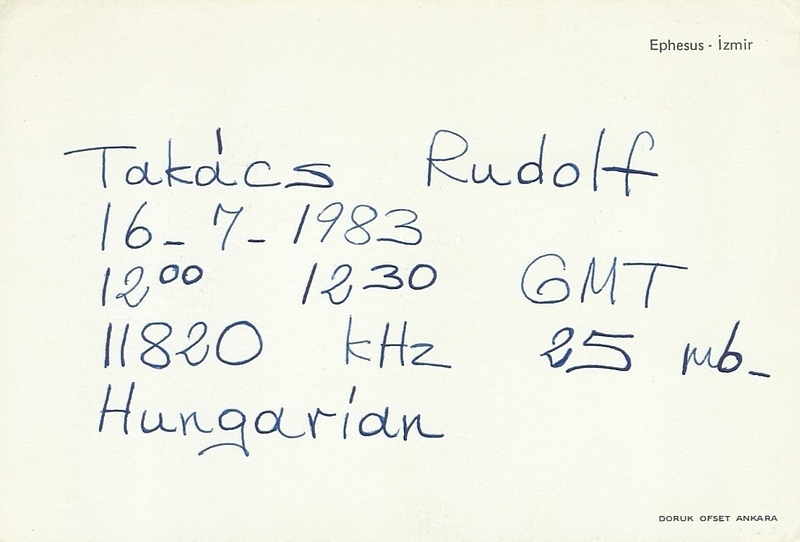 Ephesus - İzmir
Takács Rudolf
16_ 7_ 1983
12⁰⁰ 12³⁰ GMT
11820 kHz 25 mb_
Hungarian
DORUK OFSET ANKARA